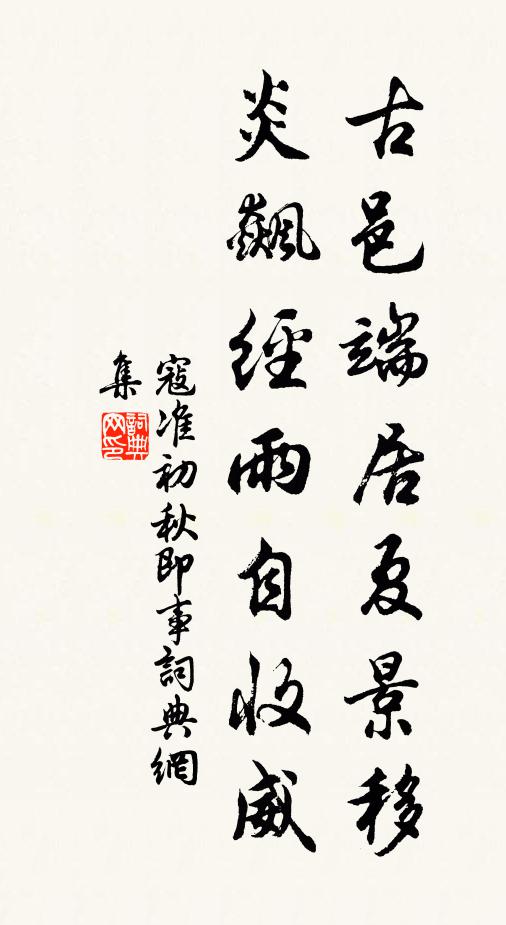 古邑端居夏景移
炎飇經雨自收威
寇准初秋即事詞典網
集
詞典
网印